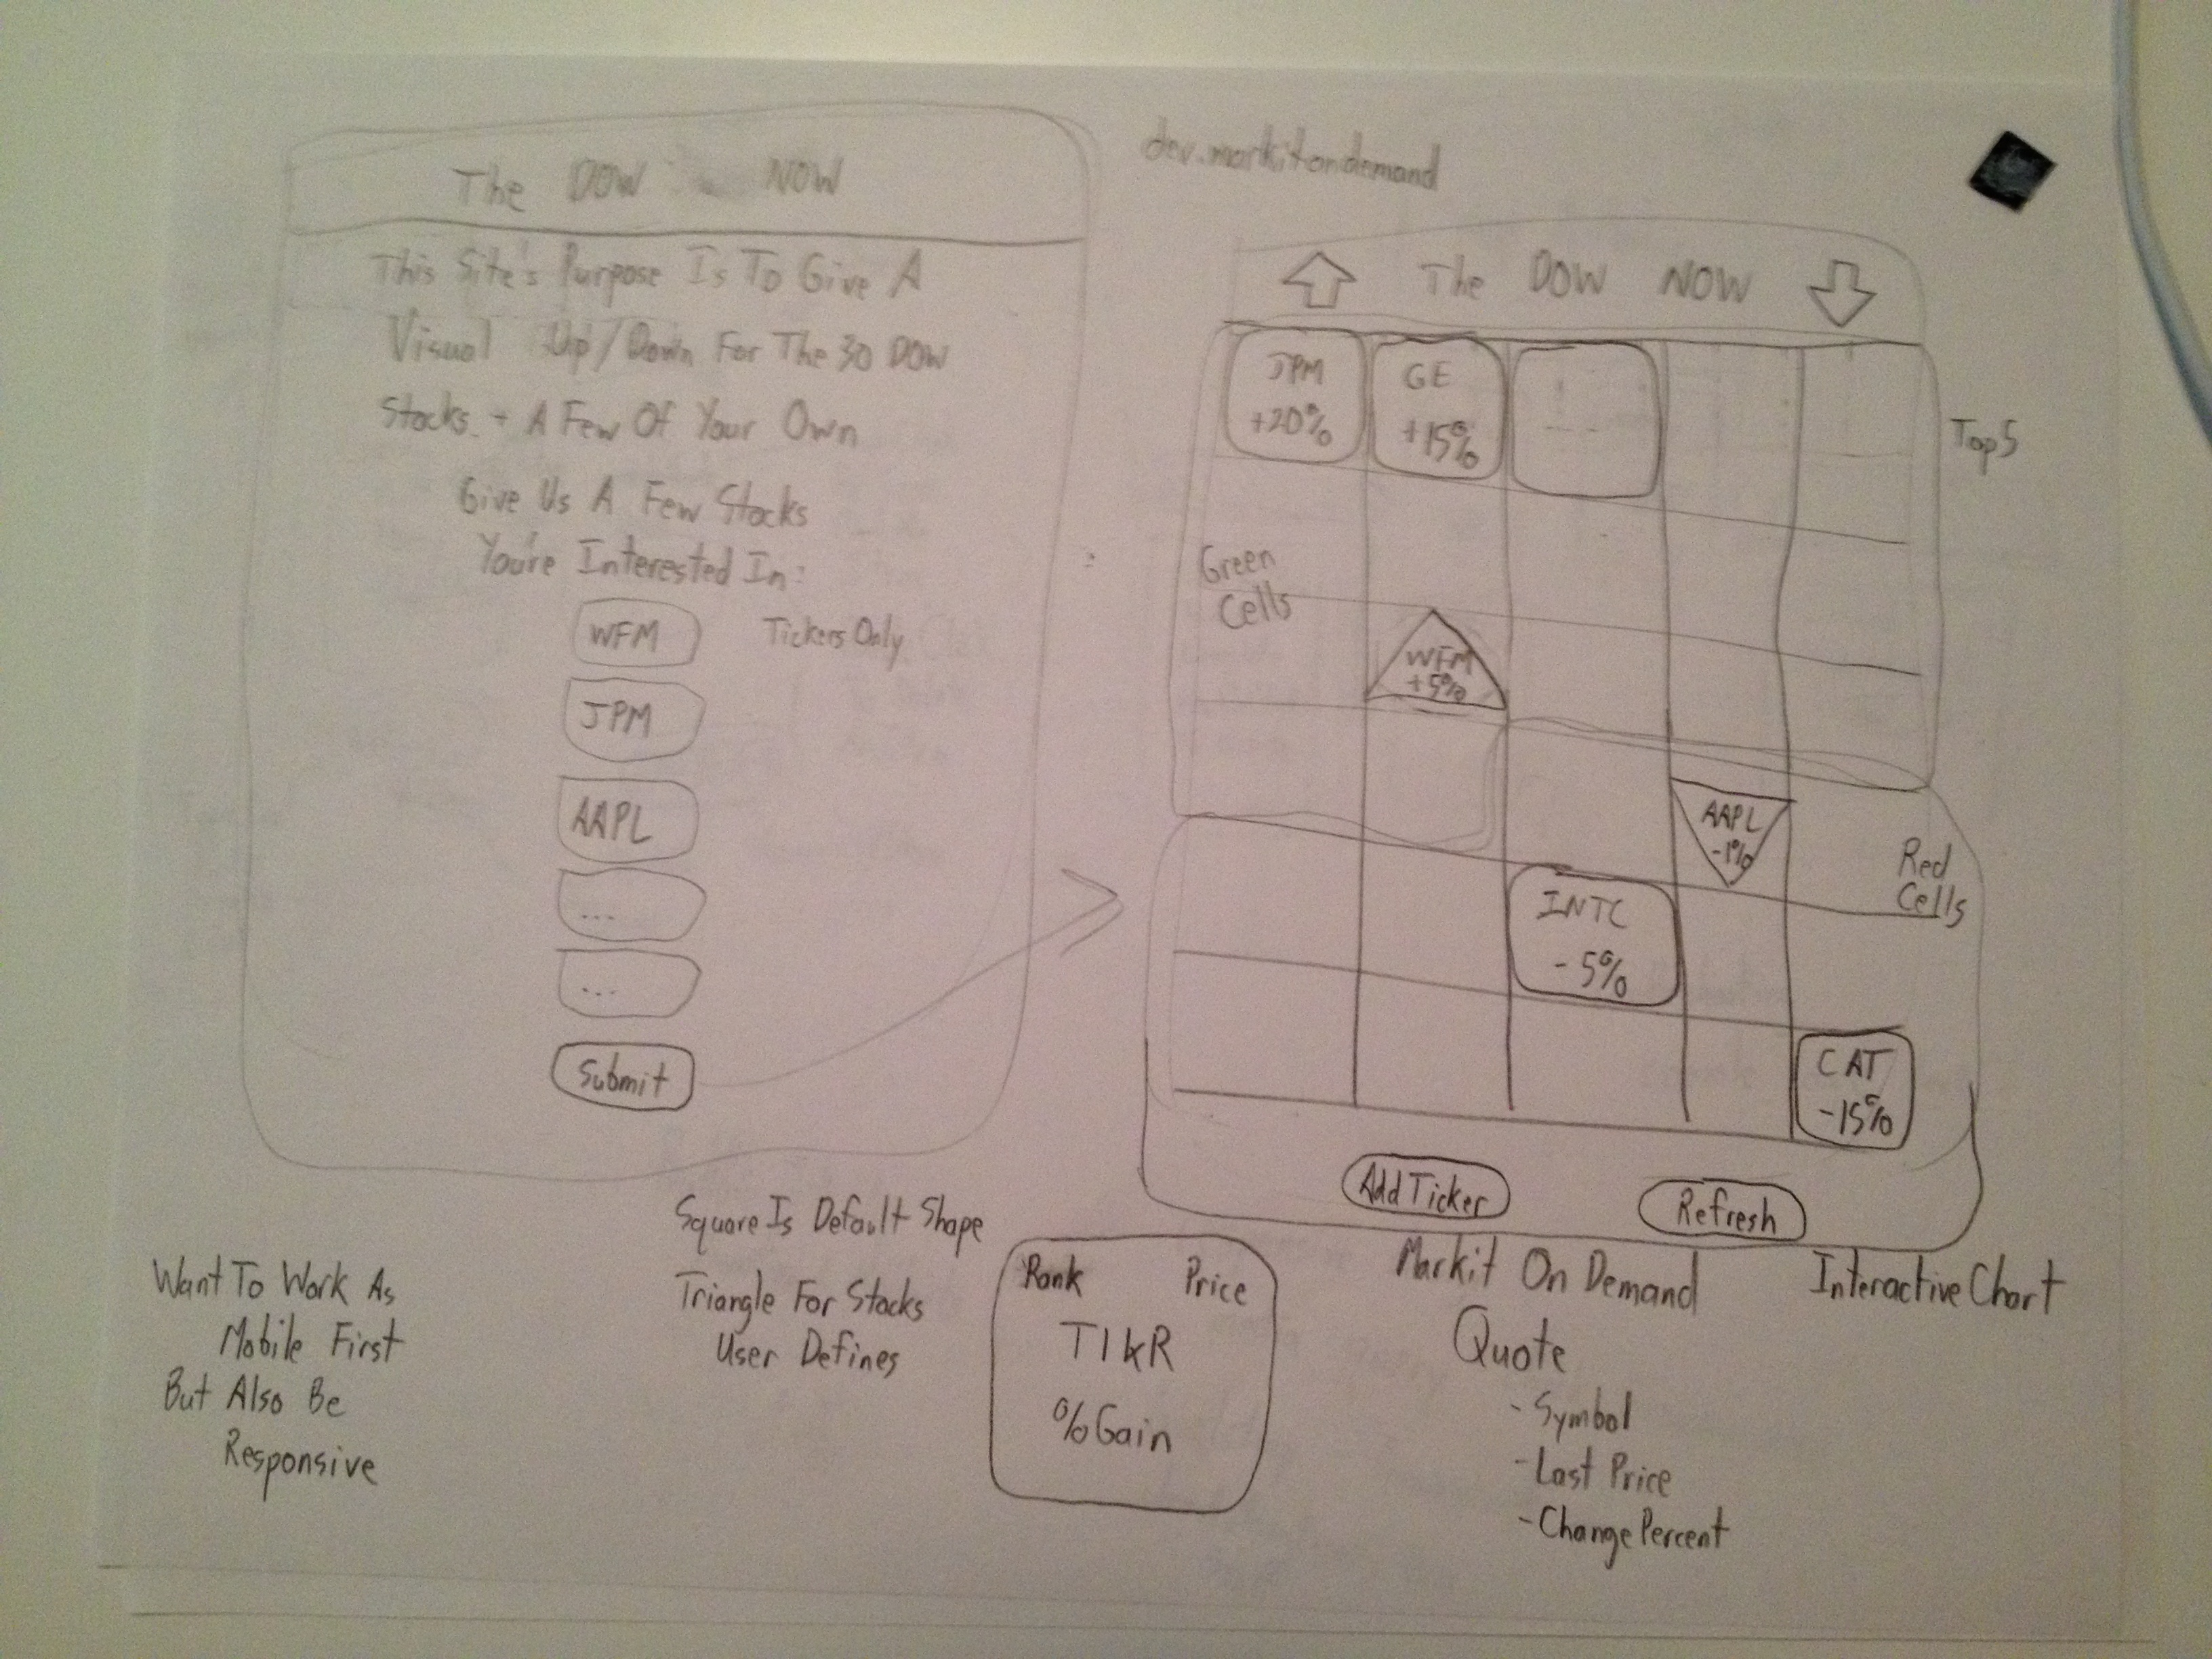 The DOW NOW
This Site's Purpose Is To Give A
Visual Up/Down For The 30 DOW
Stocks + A Few Of Your Own
Give Us A Few Stocks
You're Interested In:
WFM
Tickers Only
JPM
AAPL
...
...
Submit
dev.markitondemand
The DOW NOW
JPM
+20%
GE
+15%
Top 5
Green
Cells
WFM
+5%
AAPL
-1%
Red
Cells
INTC
- 5%
CAT
-15%
Add Ticker
Refresh
Want To Work As
Mobile First
But Also Be
Responsive
Square Is Default Shape
Triangle For Stocks
User Defines
Rank Price
TIkR
%Gain
Markit On Demand
Quote
- Symbol
- Last Price
- Change Percent
Interactive Chart